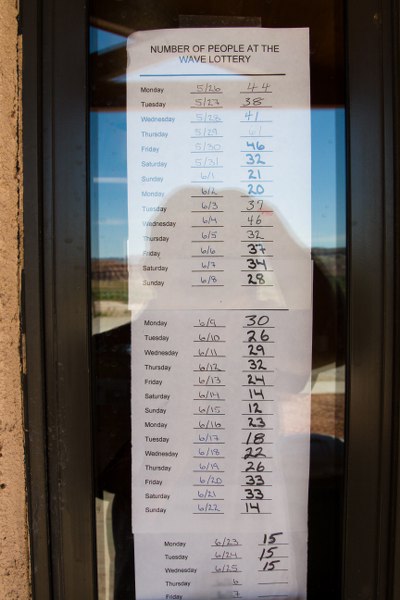 NUMBER OF PEOPLE AT THE
WAVE LOTTERY
Monday 5/26 44
Tuesday 5/27 38
Wednesday 5/28 41
Thursday 5/29 61
Friday 5/30 46
Saturday 5/31 32
Sunday 6/1 21
Monday 6/2 20
Tuesday 6/3 37
Wednesday 6/4 46
Thursday 6/5 32
Friday 6/6 37
Saturday 6/7 34
Sunday 6/8 28
Monday 6/9 30
Tuesday 6/10 26
Wednesday 6/11 29
Thursday 6/12 32
Friday 6/13 24
Saturday 6/14 14
Sunday 6/15 12
Monday 6/16 23
Tuesday 6/17 18
Wednesday 6/18 22
Thursday 6/19 26
Friday 6/20 33
Saturday 6/21 33
Sunday 6/22 14
Monday 6/23 15
Tuesday 6/24 15
Wednesday 6/25 15
Thursday
Friday